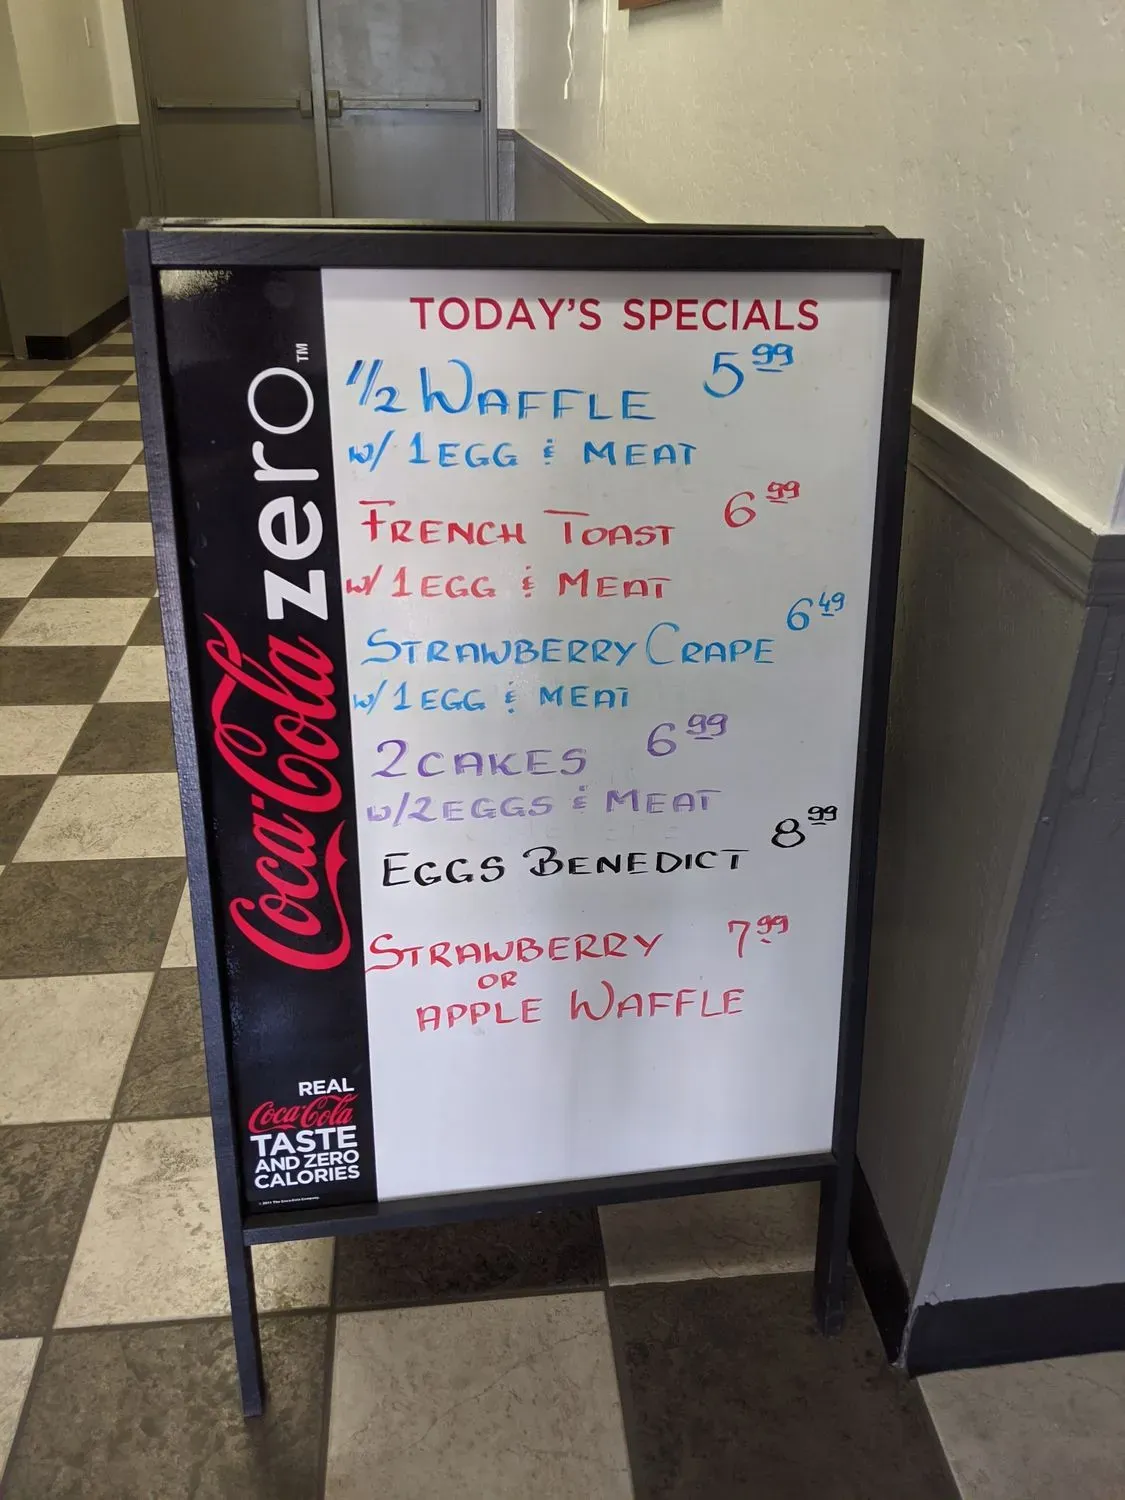 TODAY'S SPECIALS
1/2 WAFFLE 5 99
w/ 1 EGG & MEAT
FRENCH TOAST 6 99
w/ 1 EGG & MEAT
STRAWBERRY CRAPE 6 49
w/ 1 EGG & MEAT
2 CAKES 6 99
w/ 2 EGGS & MEAT
EGGS BENEDICT 8 99
STRAWBERRY 7 99
OR
APPLE WAFFLE
Coca-Cola zero™
REAL
Coca-Cola
TASTE
AND ZERO
CALORIES
© 2011 The Coca-Cola Company.